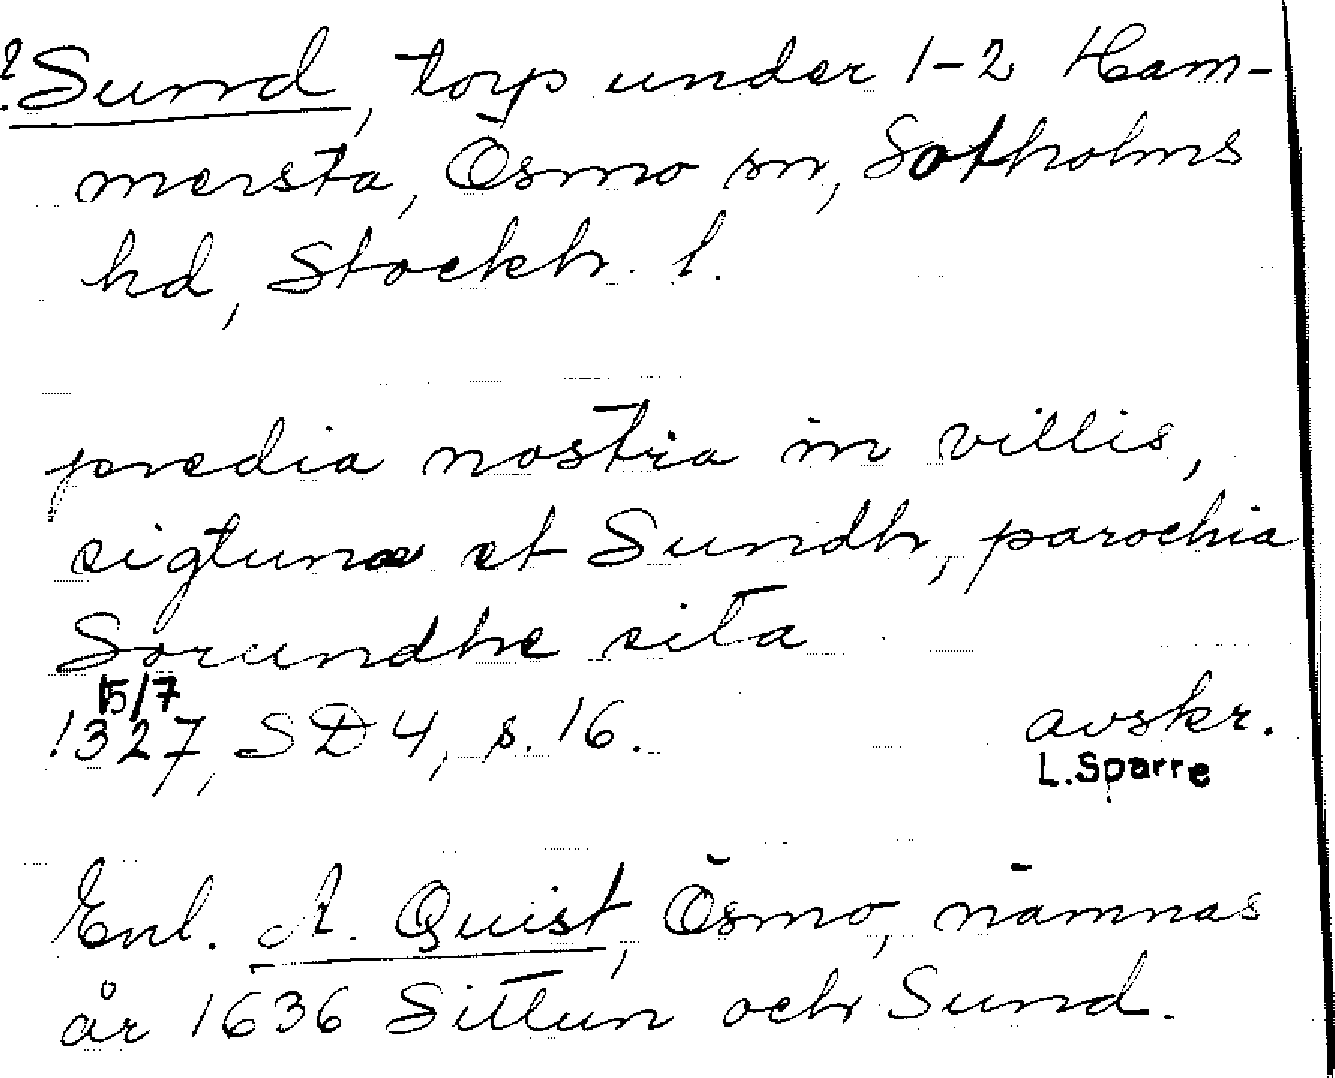 ? Sund, torp under 1-2 Ham-
mersta, Ösmo sn, Sotholms
hd, Stockh. l.
predia nostra in villis,
sigtuna et Sundh, parochia
Sorundhe sita
15/7
1327, SD 4, s. 16. avskr.
L. Sparre
Enl. A. Quist, Ösmo, nämnas
år 1636 Sittun och Sund.